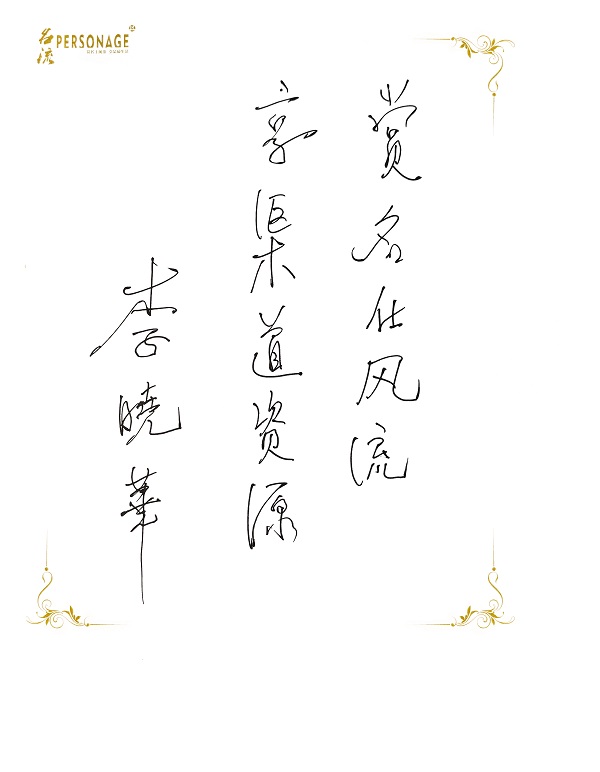 名流 PERSONAGE
赏名仕风流
享渠道资源
李晓华